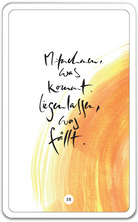 Mitnehmen,
was
kommt.
Liegenlassen,
was
fällt.
38